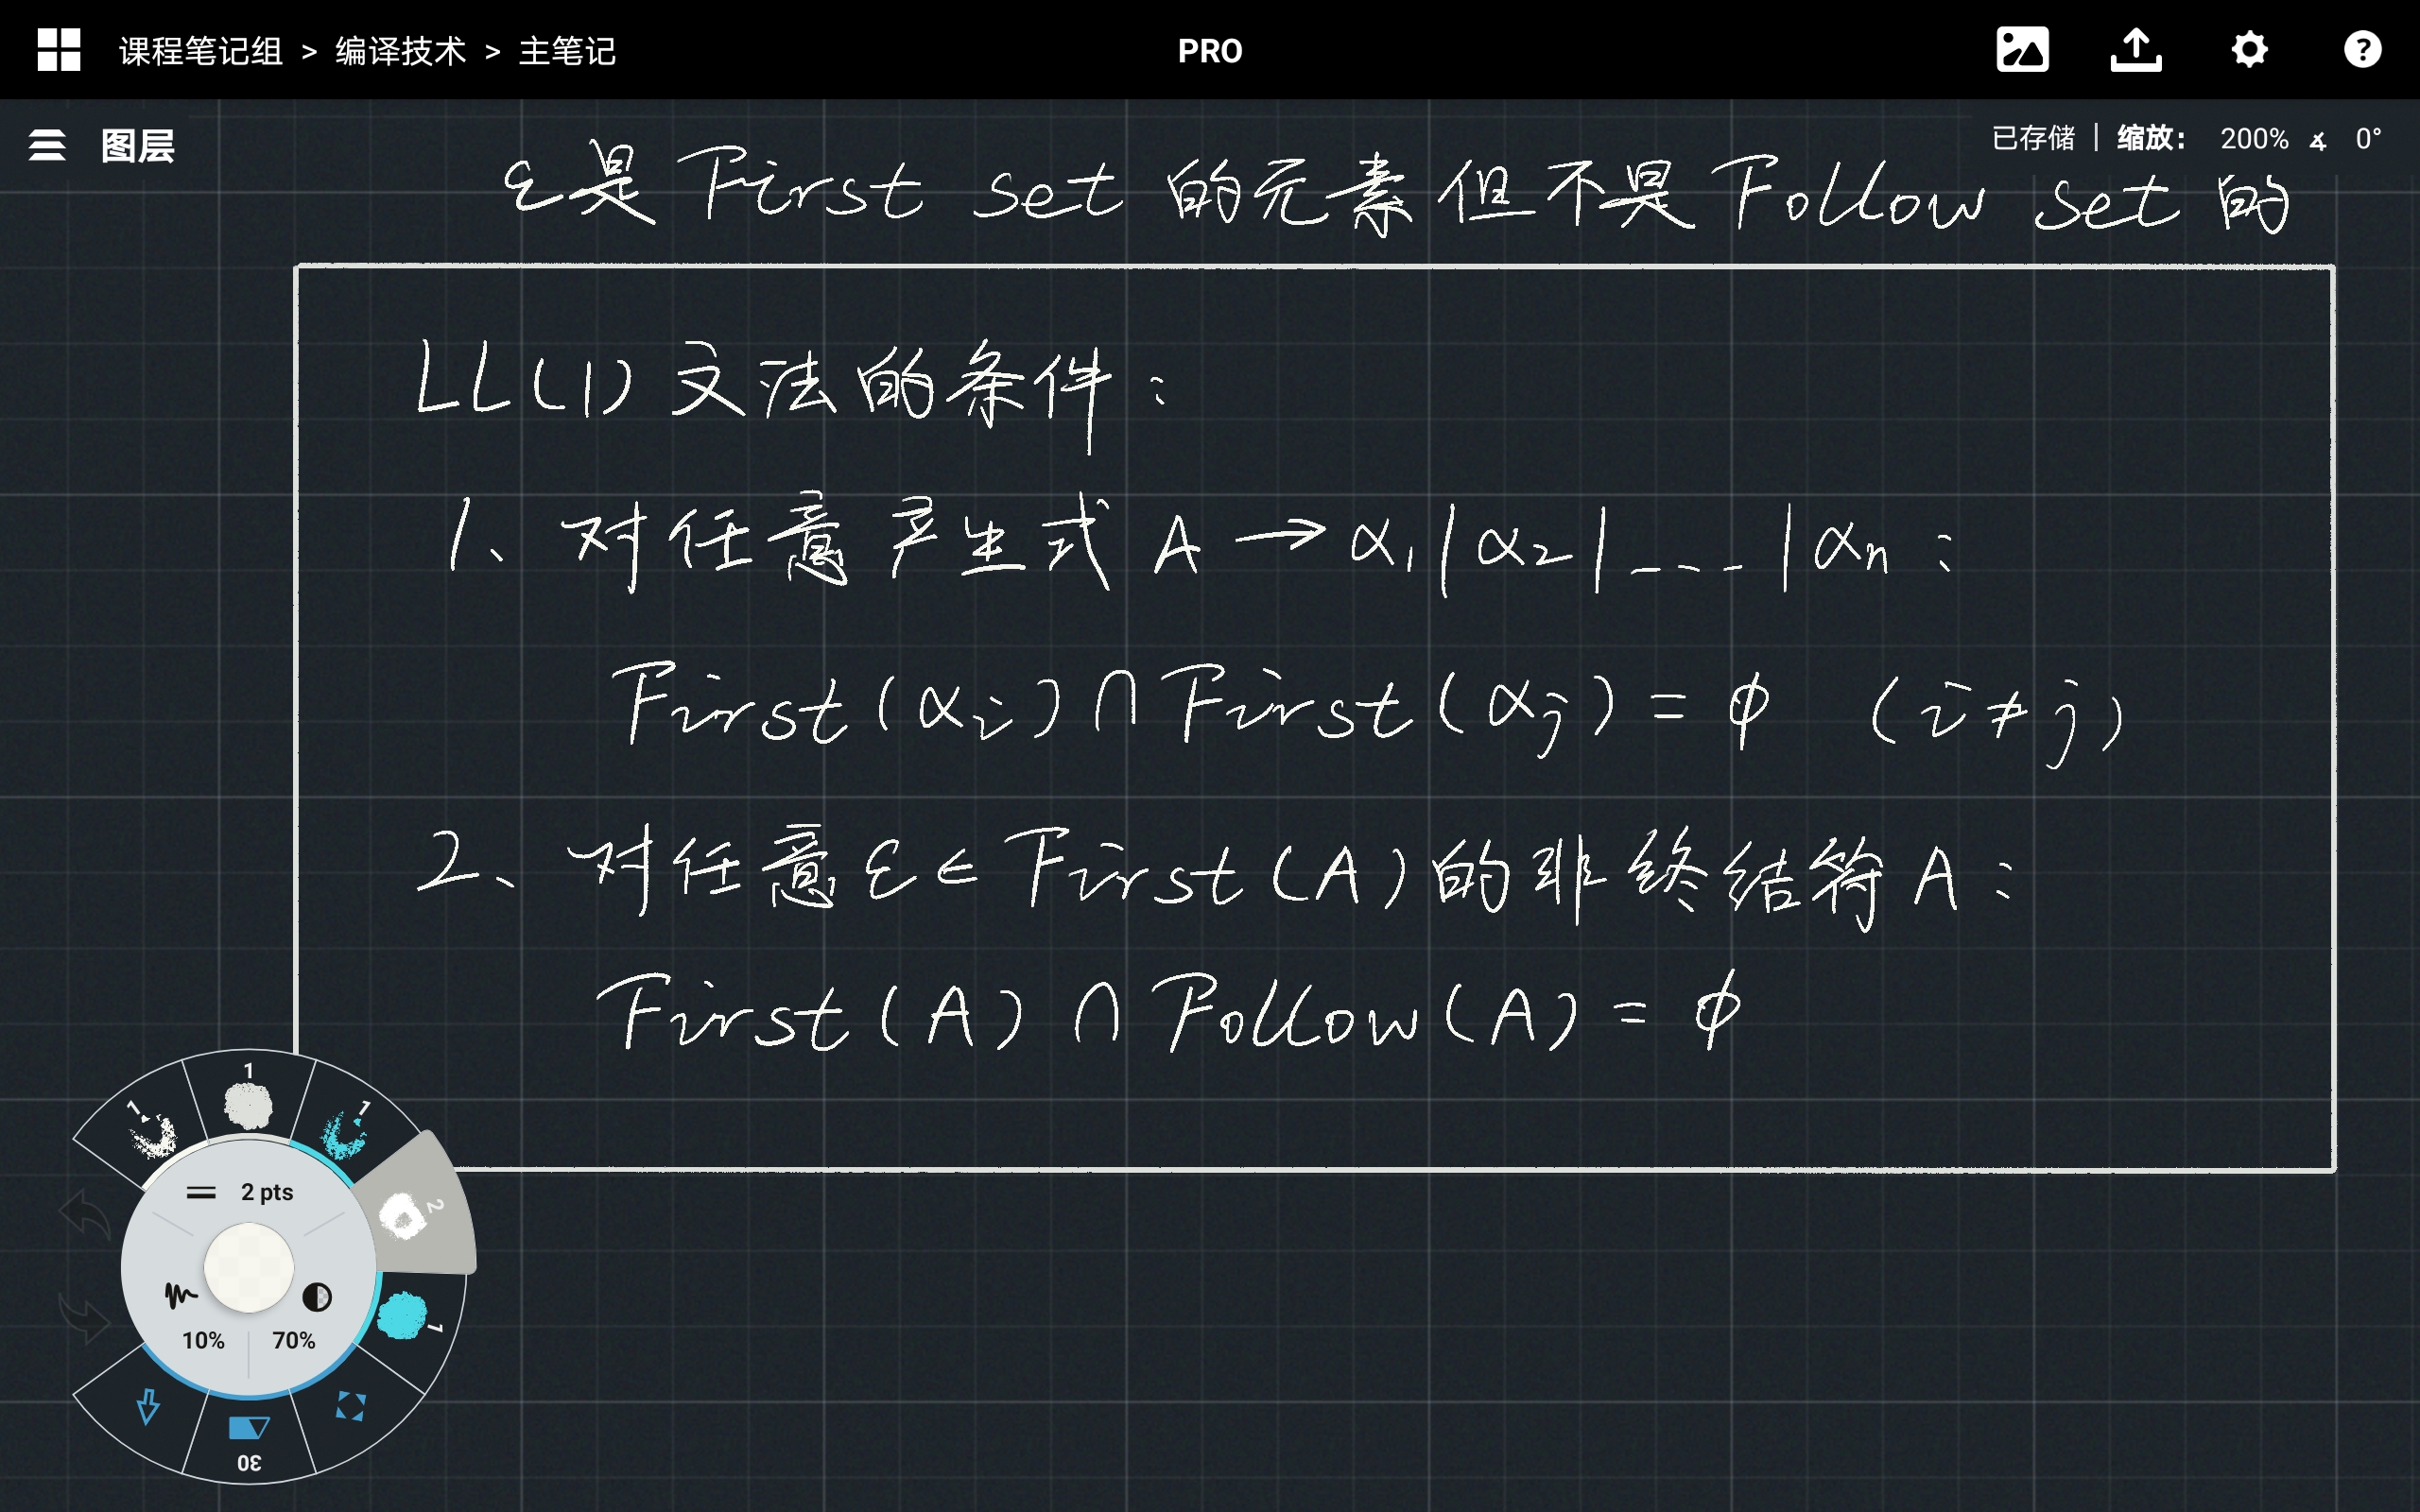 课程笔记组 > 编译技术 > 主笔记
PRO
图层
已存储 | 缩放： 200% 0°
ε是 First set 的元素但不是 Follow set 的
LL(1) 文法的条件：
1、对任意产生式 A → α₁ | α₂ | ---- | αn：
First(αi) ∩ First(αj) = φ (i ≠ j)
2、对任意 ε ∈ First(A) 的非终结符 A：
First(A) ∩ Follow(A) = φ
1
1
1
2
1
2 pts
10% 70%
30